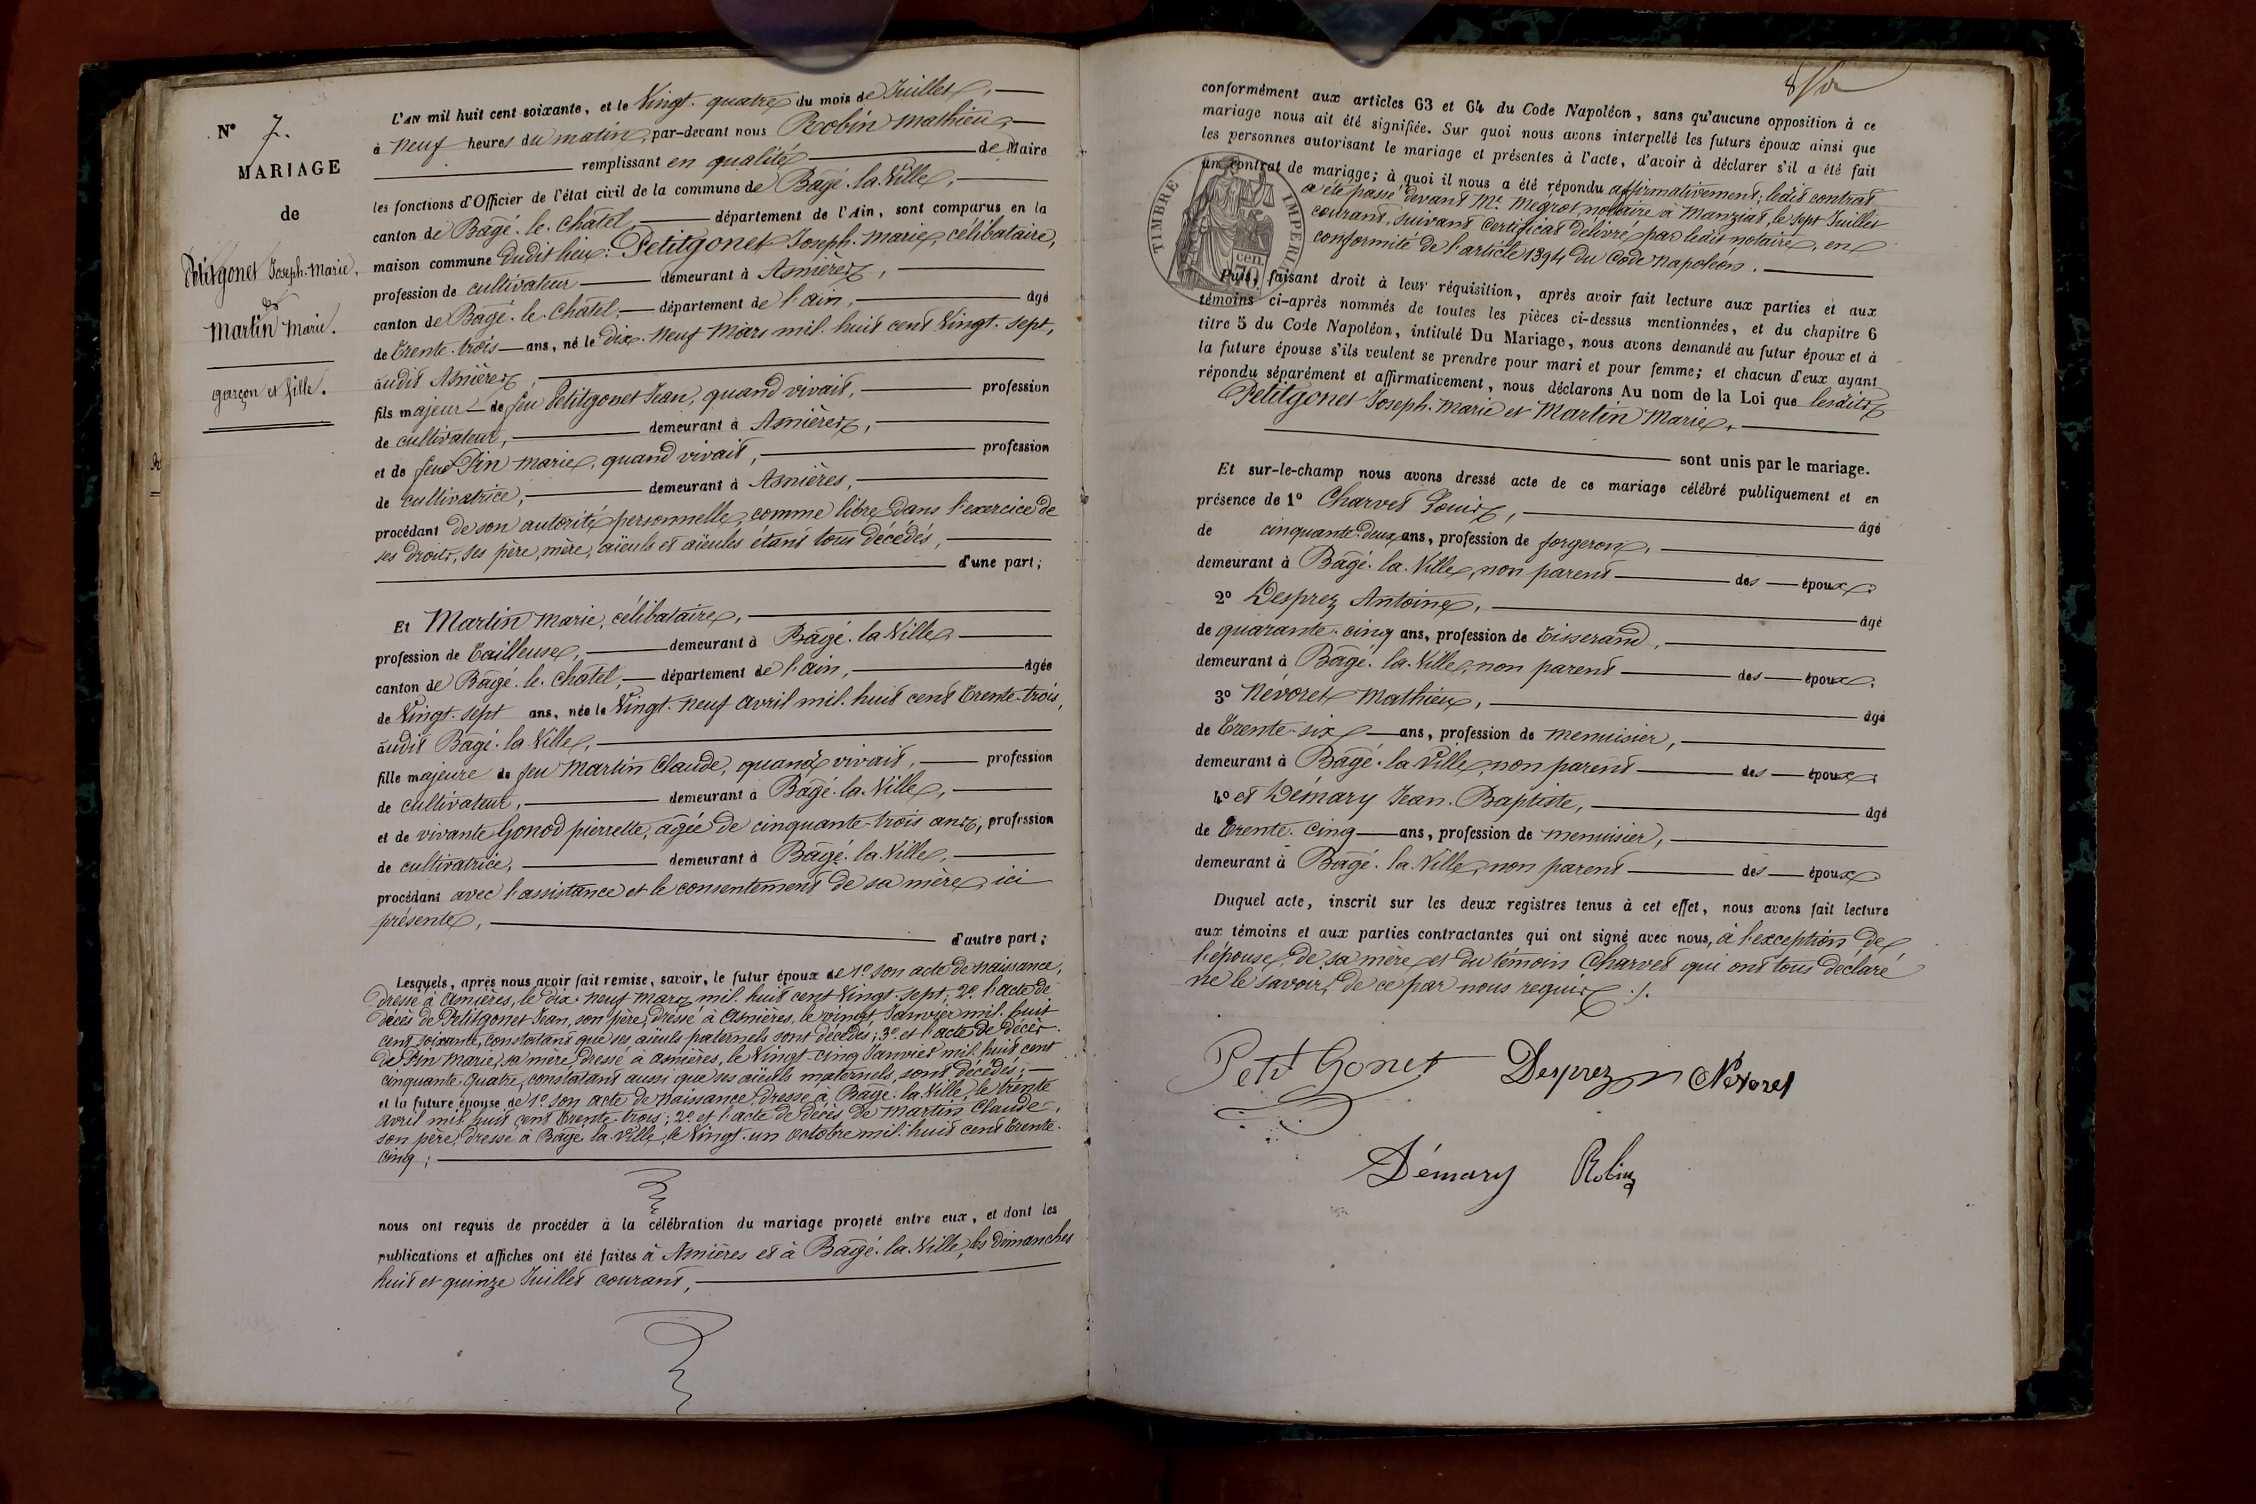 N° 7.
MARIAGE
de
Petitgonet Joseph-Marie,
et
Martin Marie.
garçon et fille.
L'AN mil huit cent soixante, et le Vingt-quatre du mois de Juillet,
à neuf heures du matin, par-devant nous Robin Mathieu,
remplissant en qualité de Maire
les fonctions d'Officier de l'état civil de la commune de Bâgé-la-Ville,
canton de Bâgé-le-Châtel, département de l'Ain, sont comparus en la
maison commune dudit lieu: Petitgonet Joseph-Marie, célibataire,
profession de cultivateur demeurant à Asnières,
canton de Bâgé-le-Châtel, département de l'ain, âgé
de Trente-trois ans, né le dix-neuf Mars mil-huit cent Vingt-sept,
audit Asnières,
fils majeur de feu Petitgonet Jean, quand vivait, profession
de cultivateur, demeurant à Asnières,
et de feue Pin Marie, quand vivait, profession
de cultivatrice, demeurant à Asnières,
procédant de son autorité personnelle, comme libre dans l'exercice de
ses droits, ses père, mère, aïeuls et aïeules étant tous décédés,
d'une part;
Et Martin Marie, célibataire,
profession de Tailleuse, demeurant à Bâgé-la-Ville
canton de Bâgé-le-Châtel, département de l'ain, âgée
de Vingt-sept ans, née le Vingt-neuf avril mil-huit cent Trente-trois,
audit Bâgé-la-Ville,
fille majeure de feu Martin Claude, quand vivait, profession
de cultivateur, demeurant à Bâgé-la-Ville,
et de vivante Gonod pierrette, âgée de cinquante-trois ans, profession
de cultivatrice, demeurant à Bâgé-la-Ville,
procédant avec l'assistance et le consentement de sa mère, ici
présente,
d'autre part;
Lesquels, après nous avoir fait remise, savoir, le futur époux de 1° son acte de naissance,
dressé à Asnières, le dix-neuf mars mil-huit cent Vingt-sept; 2° l'acte de
décès de Petitgonet Jean, son père, dressé à Asnières, le vingt Janvier mil-huit
cent soixante, constatant que ses aïeuls paternels sont décédés; 3° et l'acte de décès
de Pin Marie, sa mère, dressé à asnières, le Vingt-cinq Janvier mil-huit cent
cinquante-quatre, constatant aussi que ses aïeuls maternels, sont décédés;
et la future épouse de 1° son acte de naissance dressé à Bâgé-la-Ville, le trente
avril mil-huit cent Trente-trois; 2° et l'acte de décès de Martin Claude,
son père, dressé à Bâgé-la-Ville, le Vingt-un octobre mil-huit cent Trente-
cinq;
nous ont requis de procéder à la célébration du mariage projeté entre eux, et dont les
publications et affiches ont été faites à Asnières et à Bâgé-la-Ville, les dimanches
huit et quinze Juillet courant,
conformément aux articles 63 et 64 du Code Napoléon, sans qu'aucune opposition à ce
mariage nous ait été signifiée. Sur quoi nous avons interpellé les futurs époux ainsi que
les personnes autorisant le mariage et présentes à l'acte, d'avoir à déclarer s'il a été fait
un contrat de mariage; à quoi il nous a été répondu affirmativement; ledit contrat
a été passé devant Me Mégrot, notaire à Manziat, le sept Juillet
courant, suivant certificat délivré par ledit notaire, en
conformité de l'article 1394 du Code Napoléon.
TIMBRE IMPERIAL
70 cen.
Puis, faisant droit à leur réquisition, après avoir fait lecture aux parties et aux
témoins ci-après nommés de toutes les pièces ci-dessus mentionnées, et du chapitre 6
titre 5 du Code Napoléon, intitulé Du Mariage, nous avons demandé au futur époux et à
la future épouse s'ils veulent se prendre pour mari et pour femme; et chacun d'eux ayant
répondu séparément et affirmativement, nous déclarons Au nom de la Loi que lesdits
Petitgonet Joseph-Marie et Martin Marie,
sont unis par le mariage.
Et sur-le-champ nous avons dressé acte de ce mariage célébré publiquement et en
présence de 1° Charvet Louis, âgé
de cinquante-deux ans, profession de forgeron,
demeurant à Bâgé-la-Ville, non parent des époux
2° Desprez Antoine, âgé
de quarante-cinq ans, profession de Tisserand,
demeurant à Bâgé-la-Ville, non parent des époux,
3° Névoret Mathieu, âgé
de Trente-six ans, profession de menuisier,
demeurant à Bâgé-la-Ville, non parent des époux,
4° et Démary Jean-Baptiste, âgé
de Trente-cinq ans, profession de menuisier,
demeurant à Bâgé-la-Ville, non parent des époux
Duquel acte, inscrit sur les deux registres tenus à cet effet, nous avons fait lecture
aux témoins et aux parties contractantes qui ont signé avec nous, à l'exception de
l'épouse, de sa mère, et du témoin Charvet qui ont tous déclaré
ne le savoir, de ce par nous requis ./.
Petit Gonet Desprez Névoret
Démary Robin